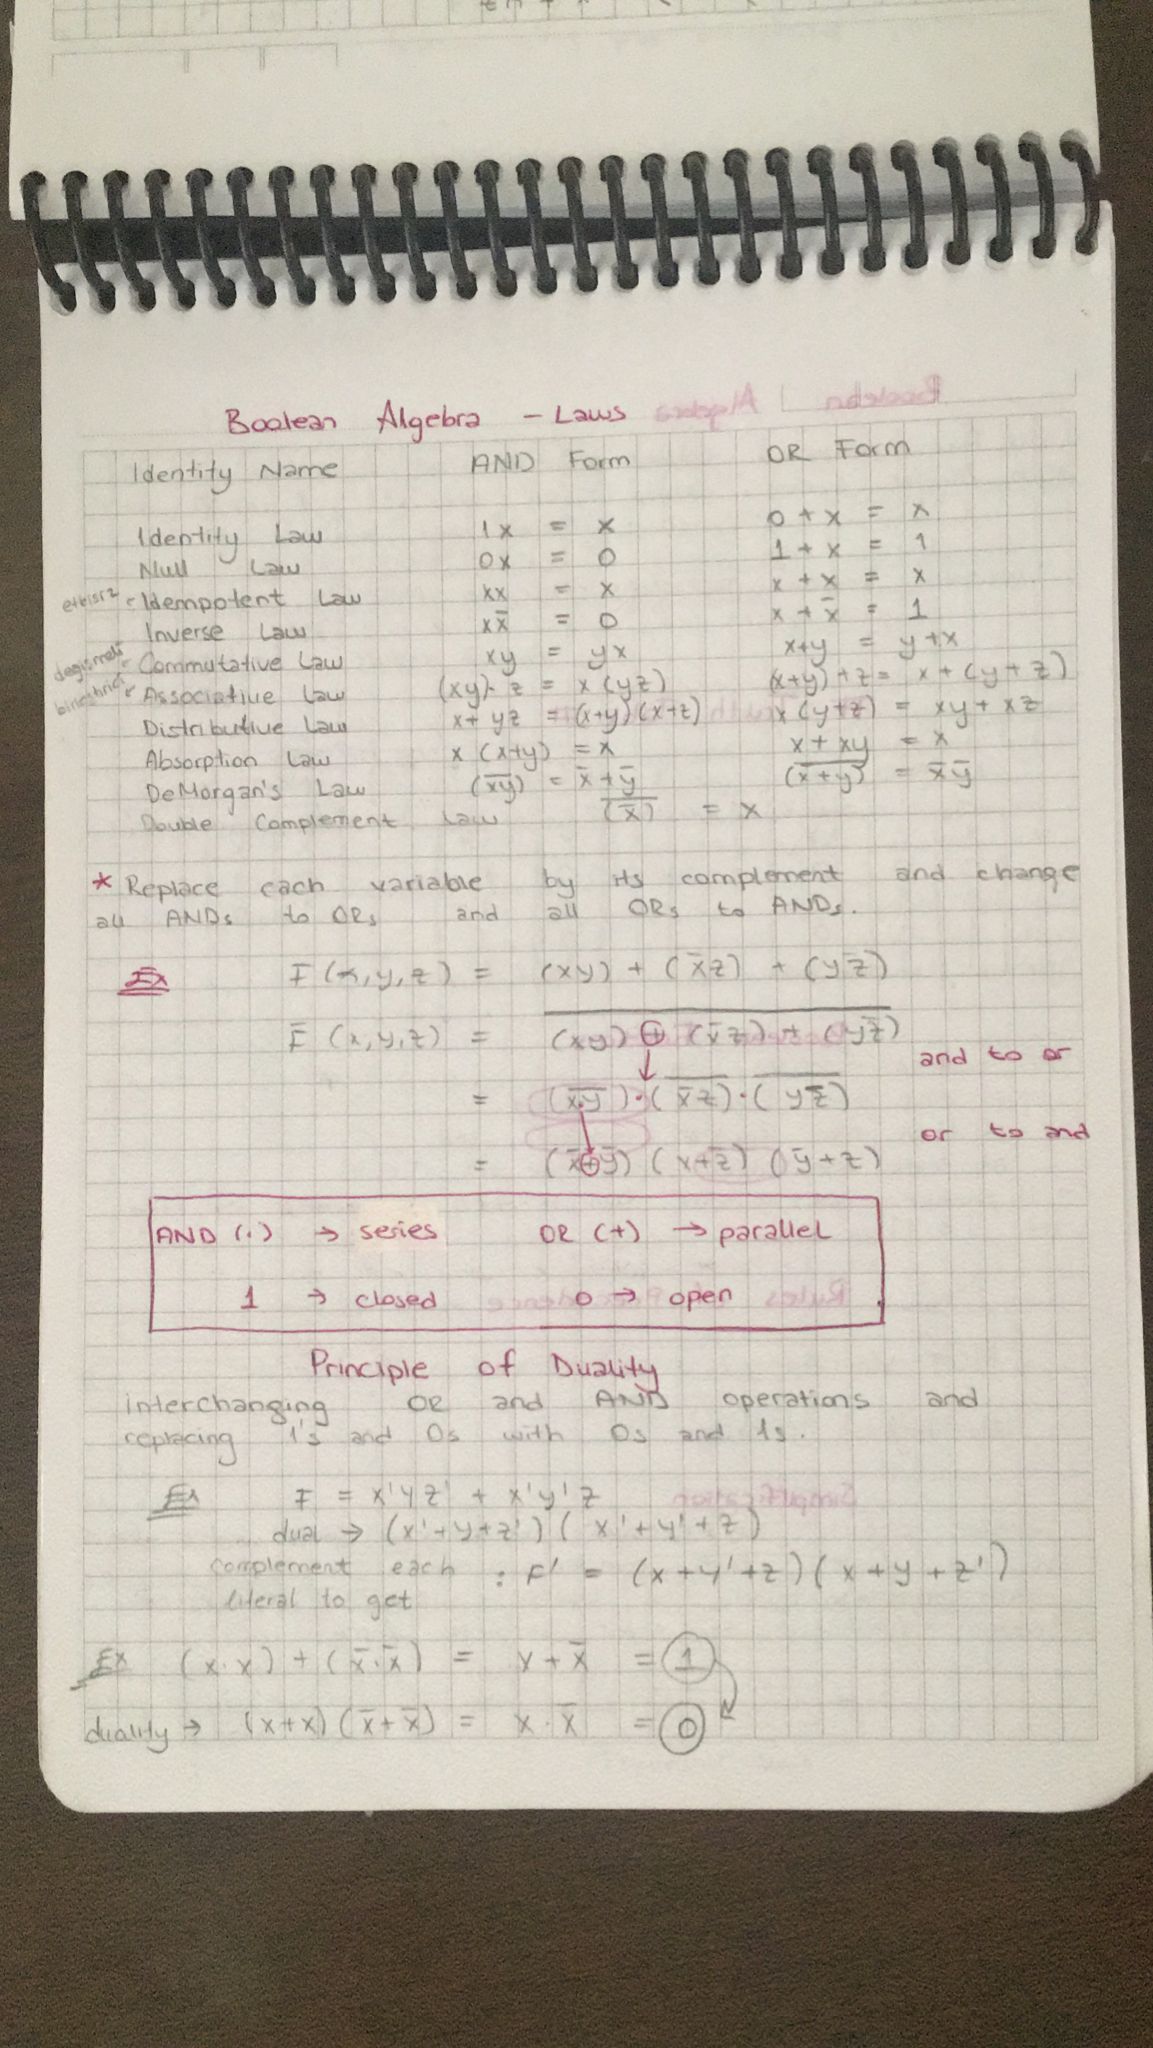 Boolean Algebra - Laws
Identity Name AND Form OR Form
Identity Law 1x = x 0 + x = x
Null Law 0x = 0 1 + x = 1
etkisiz - Idempotent Law xx = x x + x = x
Inverse Law xx̅ = 0 x + x̅ = 1
Commutative Law xy = yx x+y = y+x
Associative Law (xy)· z = x (yz) (x+y) + z = x + (y + z)
Distributive Law x + yz = (x+y) (x+z) x (y+z) = xy + xz
Absorption Law x (x+y) = x x + xy = x
DeMorgan's Law (x̅y̅) = x̅ + y̅ (x̅+̅y̅) = x̅ y̅
Double Complement Law (x̅̅) = x
* Replace each variable by its complement and change
all ANDs to ORs and all ORs to ANDs.
Ex F (x, y, z) = (xy) + (x̅z) + (yz̅)
F̅ (x, y, z) = (xy) + (x̅z) + (yz̅)
and to or
= (x̅y̅) · (x̅z) · (yz̅)
or to and
= (x̅+y̅) (x+z̅) (y̅+z)
AND (.) → series OR (+) → parallel
1 → closed 0 → open
Principle of Duality
interchanging OR and AND operations and
replacing 1's and 0s with 0s and 1s.
Ex F = x'yz' + x'y'z
dual → (x'+y+z') (x'+y'+z)
complement each : F' = (x+y'+z) (x+y+z')
literal to get
Ex (x·x) + (x̅·x̅) = x + x̅ = 1
duality → (x+x) (x̅+x̅) = x · x̅ = 0